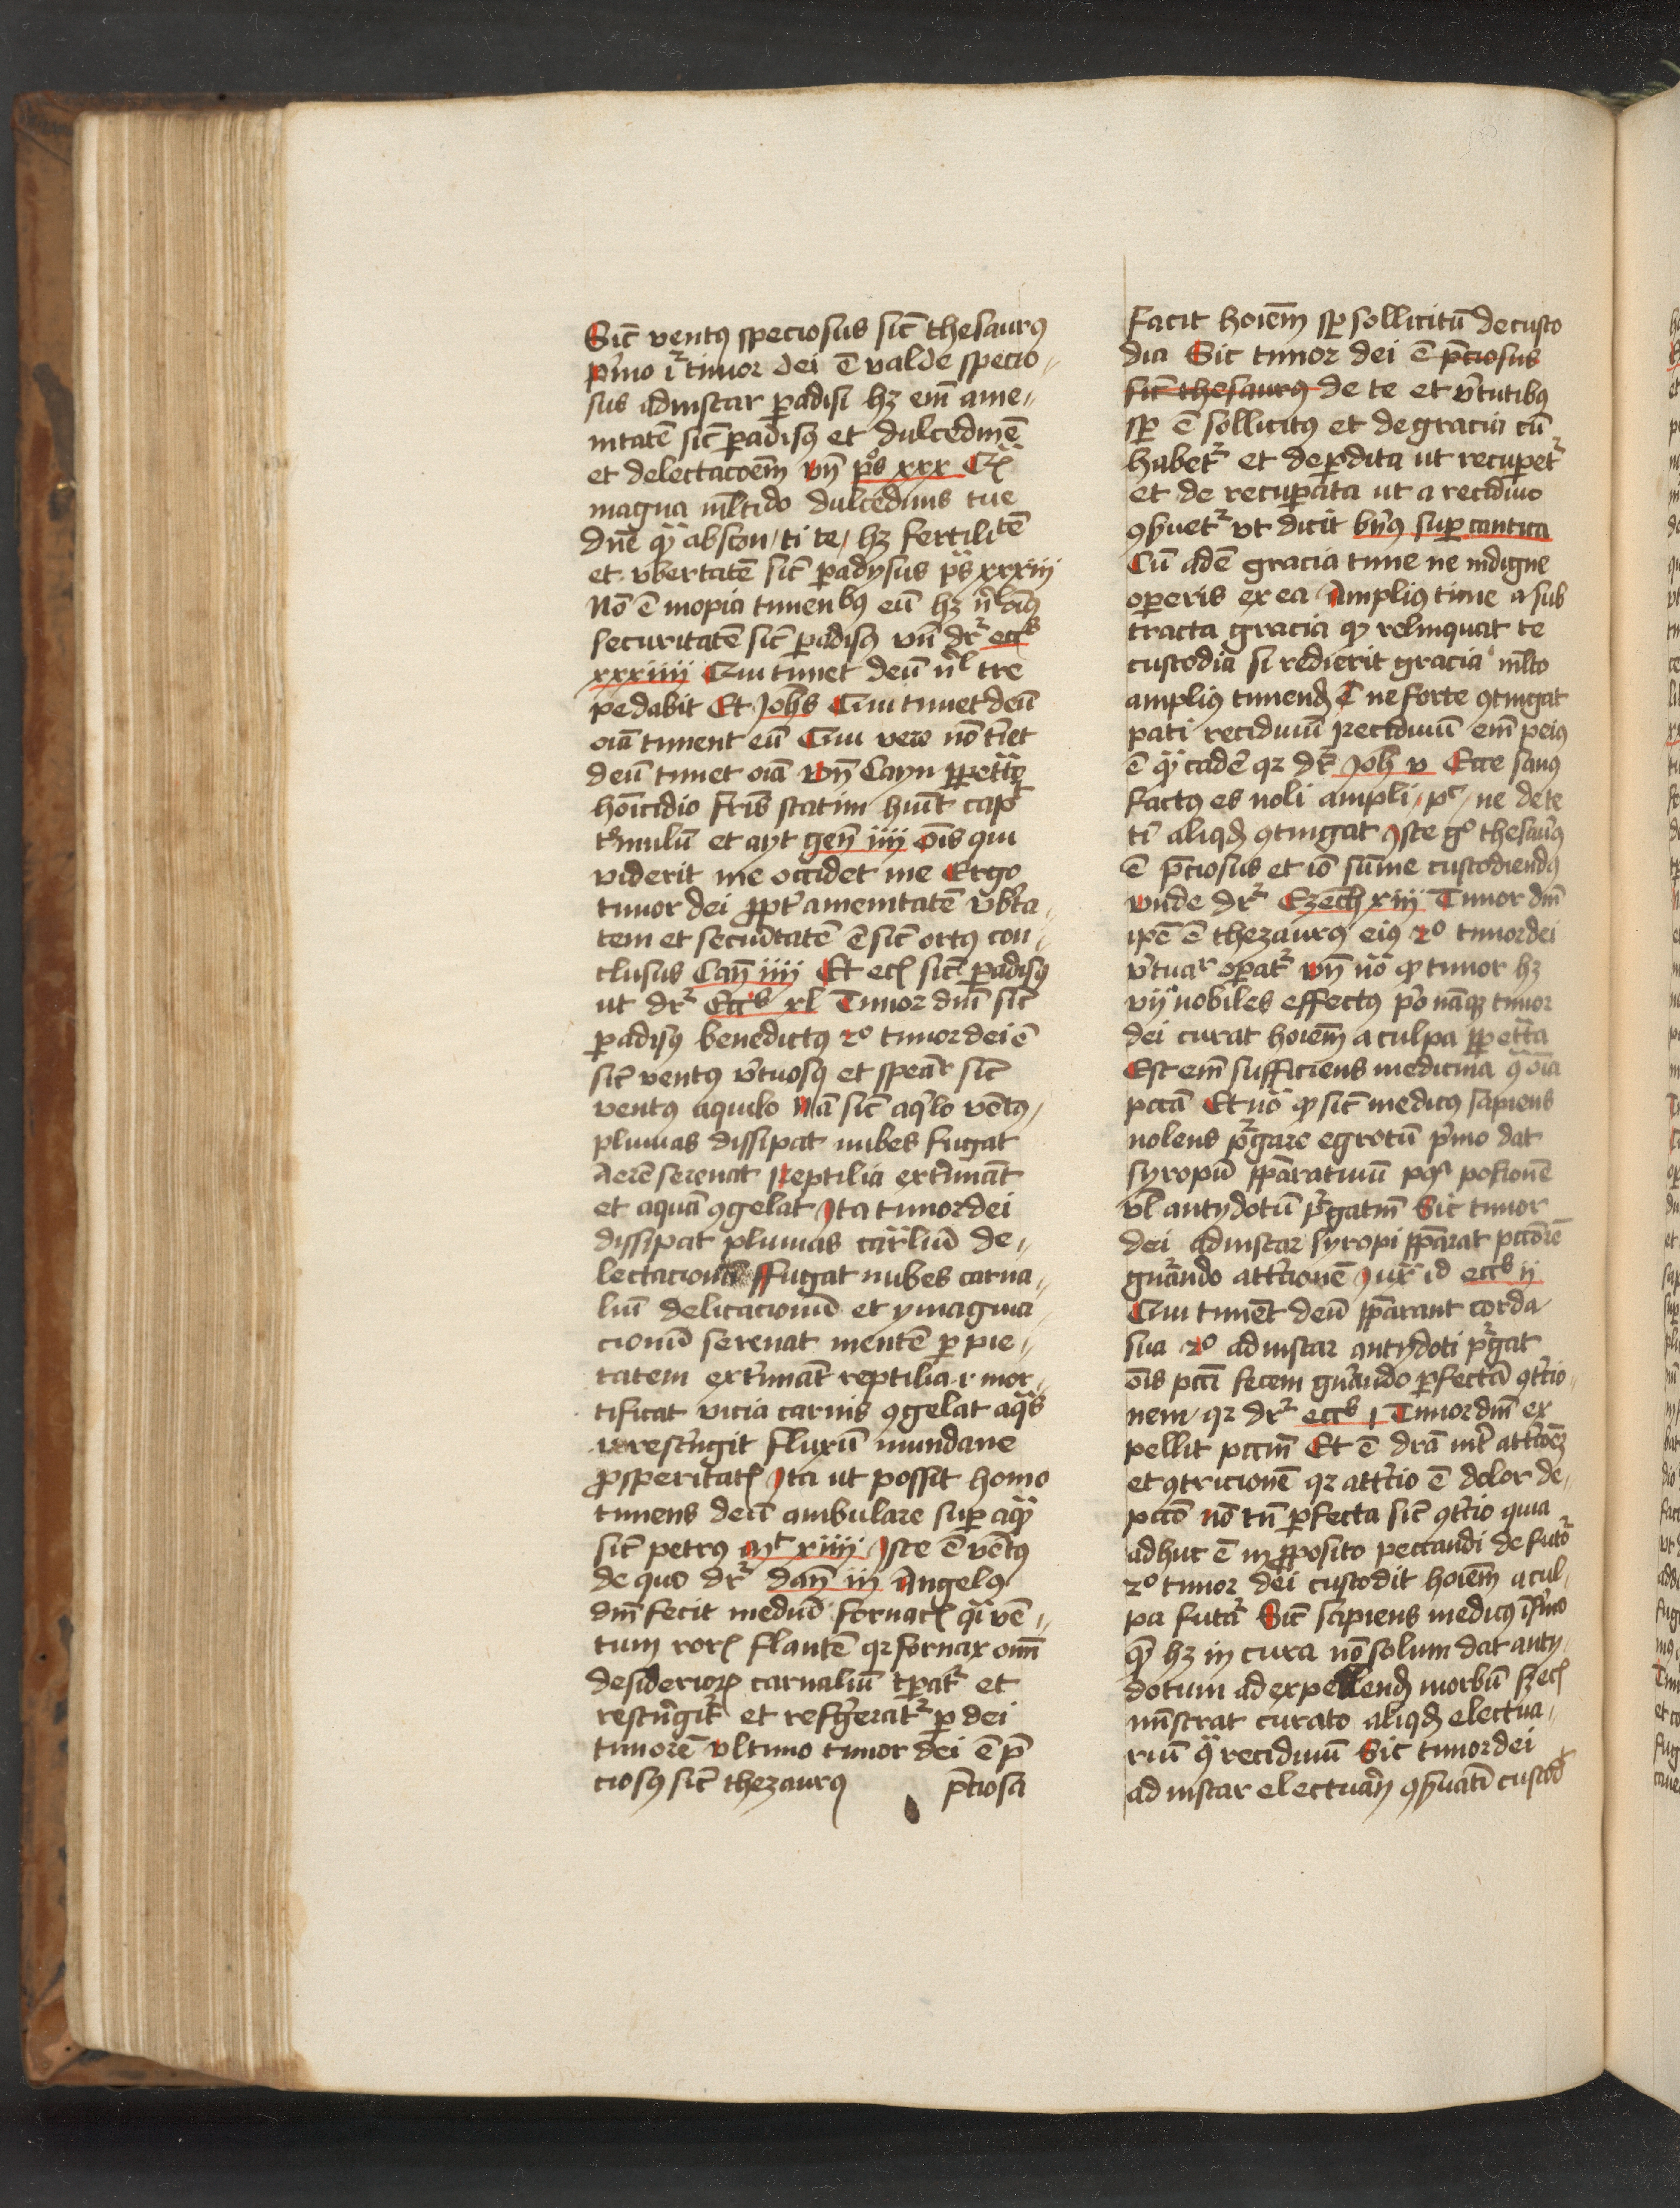 Sic̄ ventꝰ speciosus sic̄ thesaurꝰ
p̃mo r̄ timor dei ē valde specio„
sus adinstar ꝑadisi hꝫ em̄ ame„
nitatē sic̄ ꝑadisꝰ et dulcedinē
et delectacōem̄ vn̄ ps xxx Qͣ
magna ml̄tido dulcedinis tue
dn̄e qͣ abscon, ti te, hꝫ fertilitē
et vbertatē sic̄ ꝑadysus ps xxxiij
Nō ē inopia timenbꝰ eū hꝫ
securitatē sic̄ ꝑadisꝰ vn̄ dr̄ eccꝰ
xxxiiij Qui timet deū nl̄ tre
pedabit Et Johs Qui timet deū
oīa timent eū Qui vero nō tīet
deū timet oīa vn̄ Cayn ꝑpetͣto
hoīcidio fr̄is statim huit
tͥmulū et ayt gen̄ iiij oīs qui
viderit me occidet me Ergo
timor dei ꝓpt̄ amenitatē vbͬta„
tem et secūtatē ē sic̄ ortꝰ con„
clusus Can̄ iiij Et ecͥ sic̄ ꝑadisꝰ
ut dr̄ Eccꝰ xl Timor dn̄i sic̄
ꝑadisꝰ benedictꝰ 2º timor dei ē
sic̄ ventꝰ v̄tuosꝰ et speār sic̄
ventꝰ aquilo Nā sic̄ aqͥlo vētꝰ,
pluuias dissipat nubes fugat
aerē serenat reptilia ext̄mināt
et aquā ꝯgelat Ita timor dei
dissipat pluuias car̄liū de„
lectacionū ffugat nubes carna„
liū delicacionū et ymagina„
cionū serenat mentē ꝑ pie„
tatem ext̄mināt reptilia .i. mor„
tificat vicia carnis ꝯgelat aqͣs
.i. restͥngit fluxū mundane
ꝓsperitatꝭ Ita ut possit homo
timens deū ambulare suꝑ aqͣ
sic̄ petrus mͭ xiiij Iste ē vētꝰ
de quo dr̄ dan̄ iij Angelꝰ
dn̄i fecit mediū fornacꝭ qͣi vē„
tum rorꝭ flantē qꝛ fornax oim̄
desiderioꝝ carnaliū tꝑatͬ et
restͥngitͬ et refͥgeratͬ ꝑ dei
timorē vltimo timor dei ē p̄
ciosꝰ sic̄ thezaurꝰ p̄ciosa
Facit hoiem̄ sꝑ sollicitū de custo
dia Sic timor dei ē p̄ciosus
sic̄ thesaurꝰ de te et v̄tutibꝰ
sꝑ ē sollicitꝰ et de gracia cū
habetͬ et deꝑdita ut recuꝑetͬ
et de recuꝑata ut a recidiuo
ꝯẜuetͬ vt dicit bn̄ꝰ suꝑ cantica
Cū adē gracia time ne indigne
operis ex ea Ampliꝰ time a sub
tracta gracia qꝫ relinquat te
custodia si redierit gracia ml̄to
ampliꝰ timendꝫ ē ne forte ꝯtingat
pati recidiuū recidiuū em̄ peiꝰ
ē qͣ cadē qꝛ dr̄ Joh v Ecce sanꝰ
factꝰ es noli ampli, pͨ, ne dete
tͥ aliqdꝫ ꝯtingat Iste gº thesaūꝰ
ē p̄ciosus et iō sūme custodiendꝰ
vnde dr̄ Ezech xiij Timor dn̄i
ipē ē thezaurꝰ eiꝰ 2º timor dei
v̄tuar oꝑatͬ vn̄ nō qꝫ timor hꝫ
vij nobiles effectꝰ pͥo nāqꝫ timor
dei curat hoiem̄ a culpa ꝑpetͣta
Est em̄ sufficiens medicina qͣ oīa
pccā Et nō qꝫ sic̄ medicꝰ sapiens
nolens pͬgare egrotū p̃mo dat
syropū p̄ꝑaratiuū pꝰ posionē
vl̄ antydotū pͬgatm̄ Sic timor
dei adinstar syropi p̄ꝑarat pccōrē
gnͬando attͥcionē iux̄ id eccꝰ ij
Qui timēt deū p̄ꝑarant corda
sua 2º adinstar antydoti pͬgat
oīs pccī fecem gnͬando ꝑfectā ꝯtͥcio„
nem, qꝛ dr̄ eccꝰ i Timor dn̄i ex
pellit pccm̄ Et ē dr̄a int̄ attͥcōeꝫ
et ꝯtricionē qꝛ attͥcio ē dolor de„
pccō nō tn̄ ꝑfecta sic̄ ꝯtͥcio quia
adhuc ē in ꝓposito peccandi de futō
2º timor dei custodit hoiem̄ a cul„
pa futͣ Sic̄ sapiens medicꝰ
qͣ hꝫ in cura nō solum dat anty„
dotum ad expellendꝫ morbū sꝫ ecͥ
mīstrat curato aliqdꝫ electua„
riū qͣ recidiuū Sic timor dei
ad instar electuarij ꝯẜuatī custod